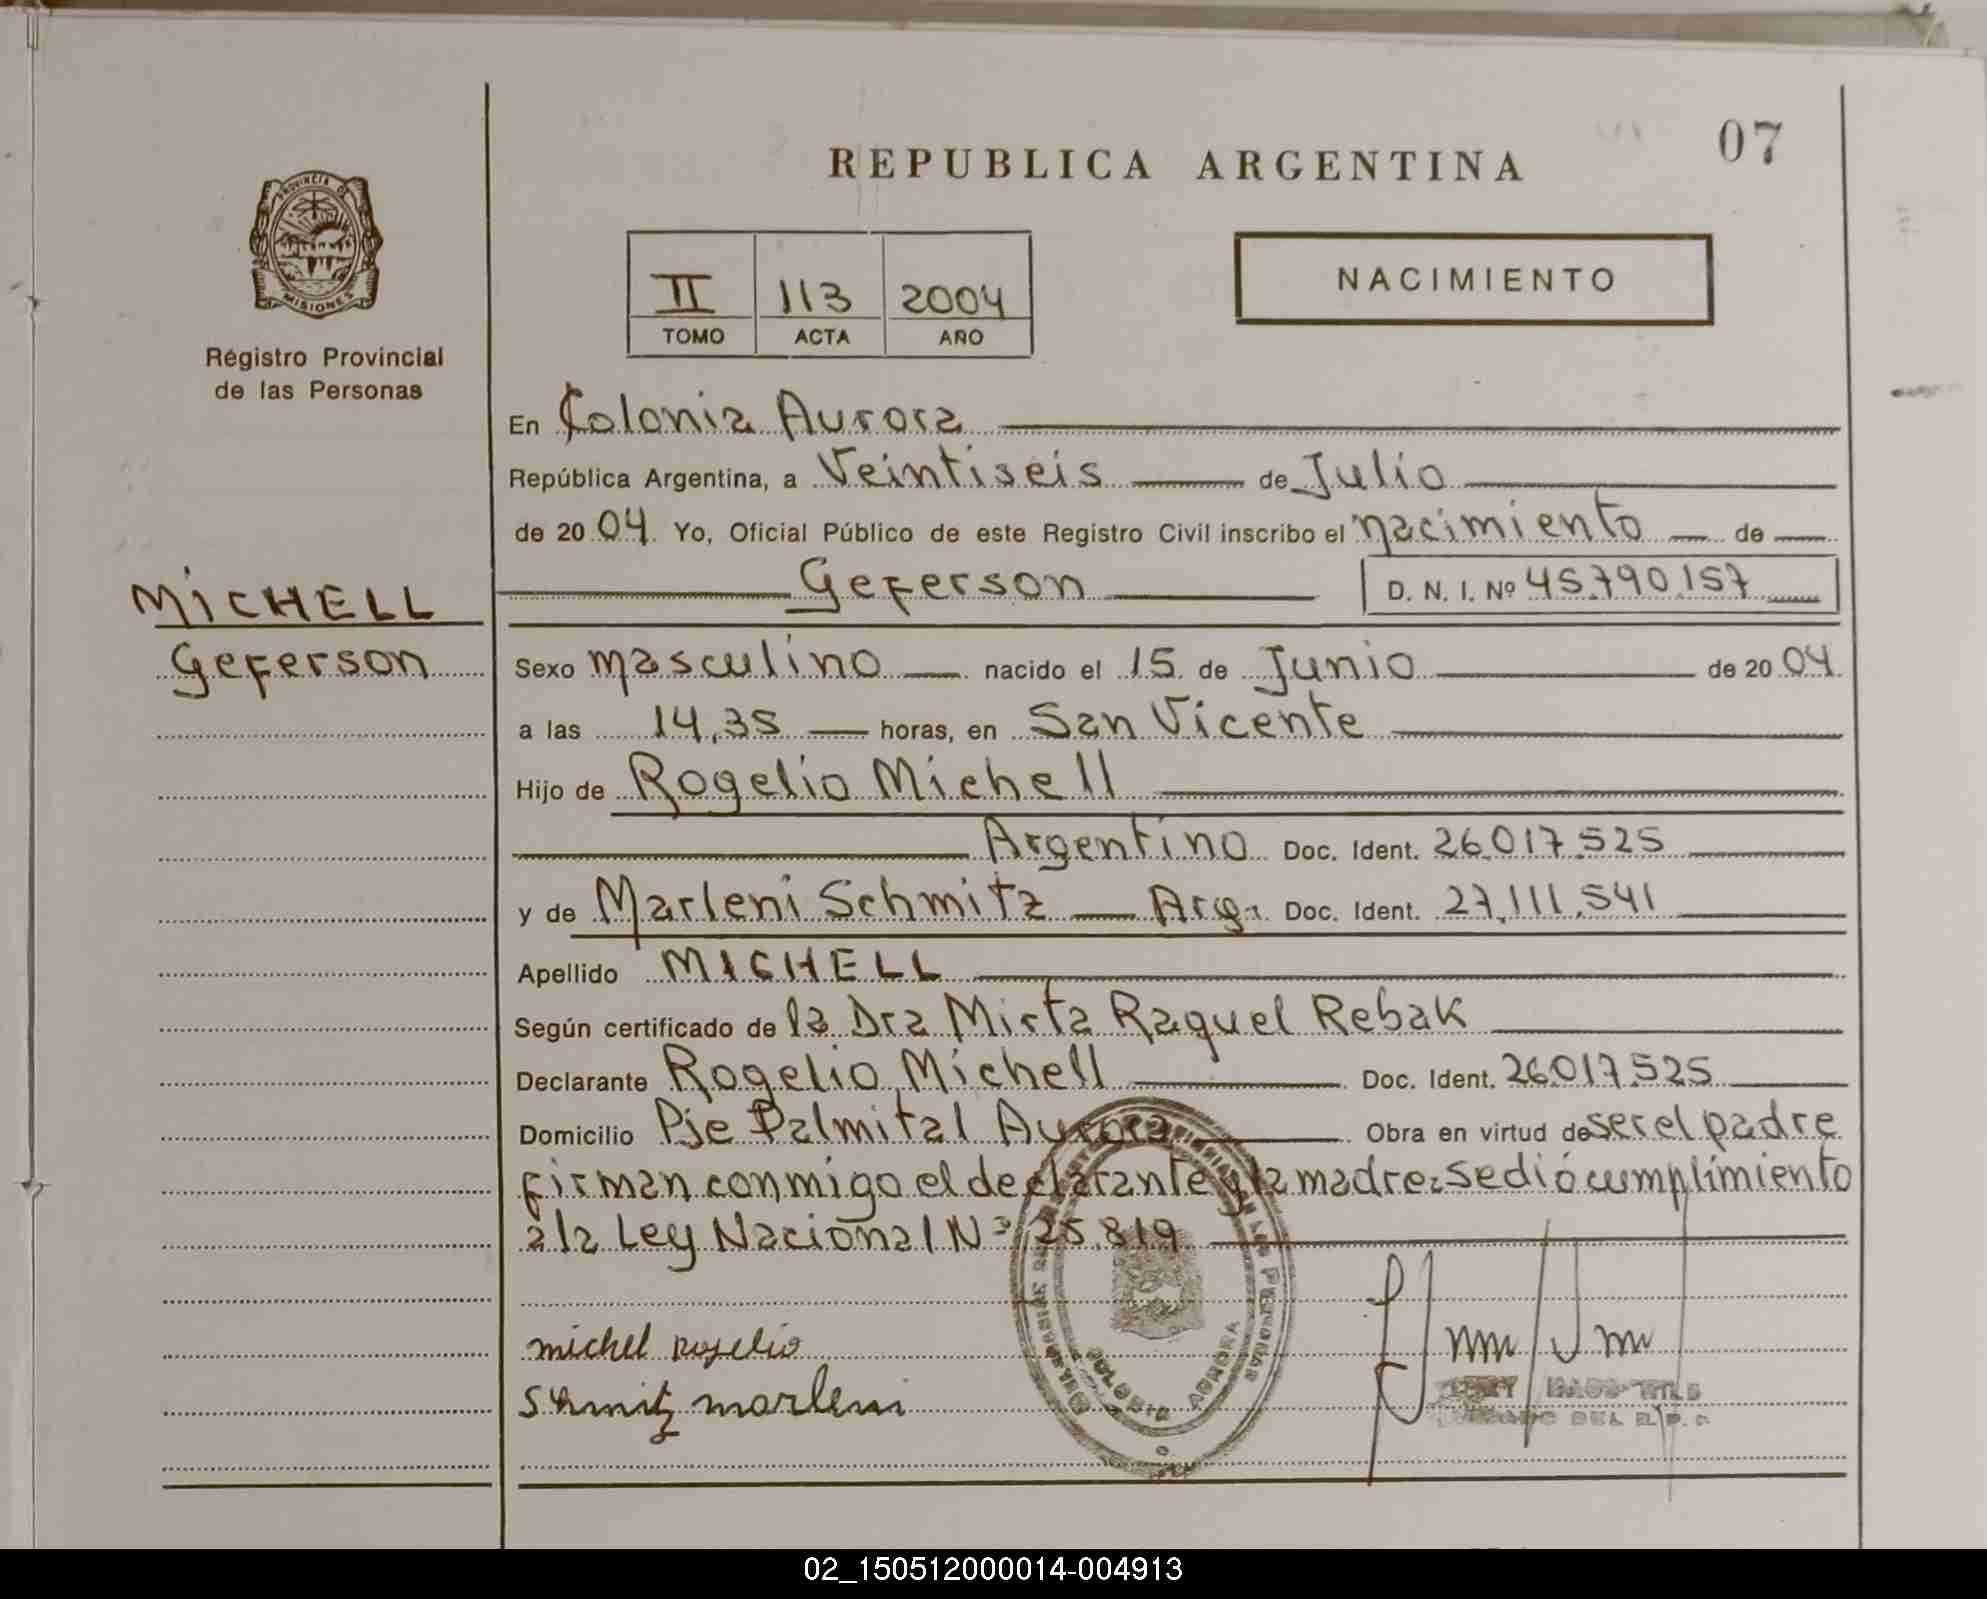 REPUBLICA ARGENTINA
07
PROVINCIA DE
MISIONES
Registro Provincial
de las Personas
II 113 2004
TOMO ACTA AÑO
NACIMIENTO
En Colonia Aurora
República Argentina, a Veintiseis de Julio
de 2004. Yo, Oficial Público de este Registro Civil inscribo el nacimiento de
Geferson D. N. I. Nº 45.790.157
MICHELL
Geferson
Sexo masculino nacido el 15 de Junio de 2004
a las 14,35 horas, en San Vicente
Hijo de Rogelio Michell
Argentino Doc. Ident. 26.017.525
y de Marleni Schmitz Arg. Doc. Ident. 27.111.541
Apellido MICHELL
Según certificado de la Dra Mirta Raquel Rebak
Declarante Rogelio Michell Doc. Ident. 26.017.525
Domicilio Pje Palmital Aurora Obra en virtud de ser el padre
firman conmigo el declarante y la madre. se dió cumplimiento
a la Ley Nacional Nº 25.819
michel rogelio
Shmitz marleni
COLONIA AURORA
DE LAS PERSONAS
02_150512000014-004913